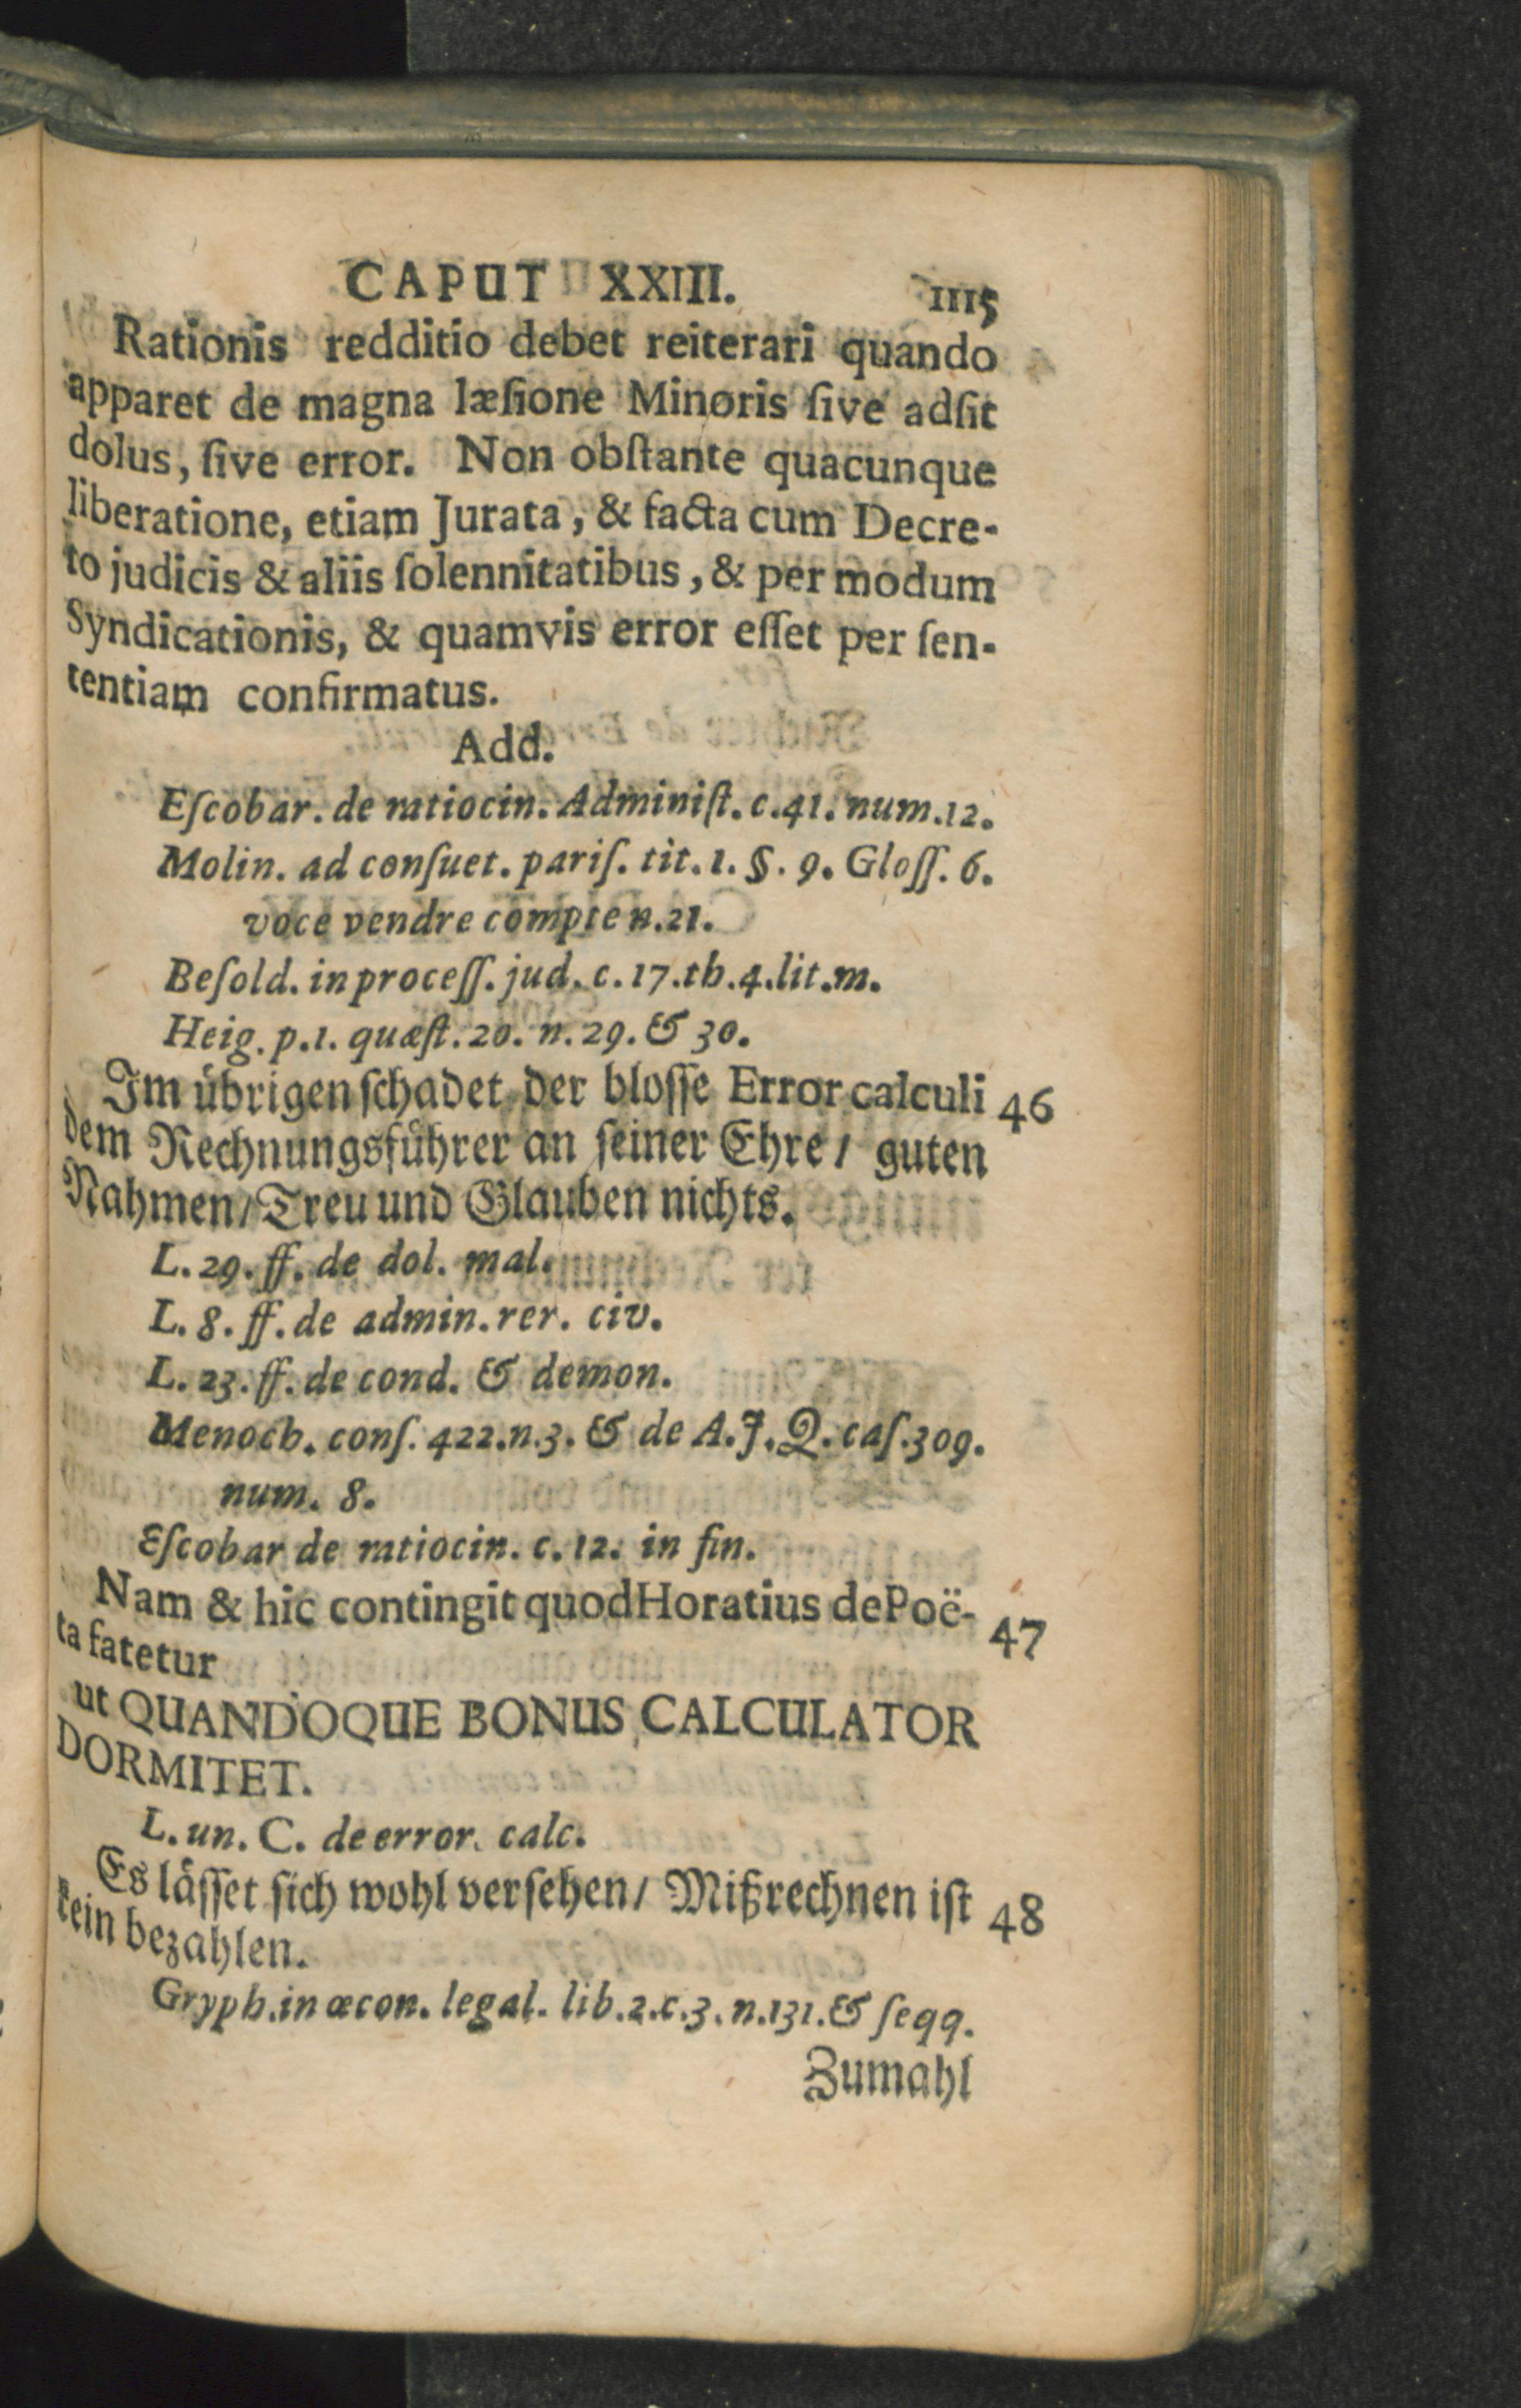 CAPUT XXIII. 1115
Rationis redditio debet reiterari quando
apparet de magna læſione Minoris ſive adſit
dolus, ſive error. Non obſtante quacunque
liberatione, etiam Jurata, & facta cum Decre-
to judicis & aliis ſolennitatibus, & per modum
Syndicationis, & quamvis error eſſet per ſen-
tentiam confirmatus.
Add.
Eſcobar. de ratiocin. Adminiſt. c. 41. num. 12.
Molin. ad conſuet. pariſ. tit. 1. §. 9. Gloſſ. 6.
voce vendre compte n. 21.
Beſold. in proceſſ. jud. c. 17. th. 4. lit. m.
Heig. p. 1. quæſt. 20. n. 29. & 30.
Im uͤbrigen ſchadet der bloſſe Error calculi 46
dem Rechnungsfuͤhrer an ſeiner Ehre / guten
Nahmen / Treu und Glauben nichts.
L. 29. ff. de dol. mal.
L. 8. ff. de admin. rer. civ.
L. 23. ff. de cond. & demon.
Menoch. conſ. 422. n. 3. & de A. J. Q. caſ. 309.
num. 8.
Eſcobar de ratiocin. c. 12. in fin.
Nam & hic contingit quod Horatius de Poë- 47
ta fatetur
ut QUANDOQUE BONUS CALCULATOR
DORMITET.
L. un. C. de error. calc.
Es laͤſſet ſich wohl verſehen / Mißrechnen iſt 48
kein bezahlen.
Gryph. in œcon. legal. lib. 2. c. 3. n. 131. & ſeqq.
Zumahl